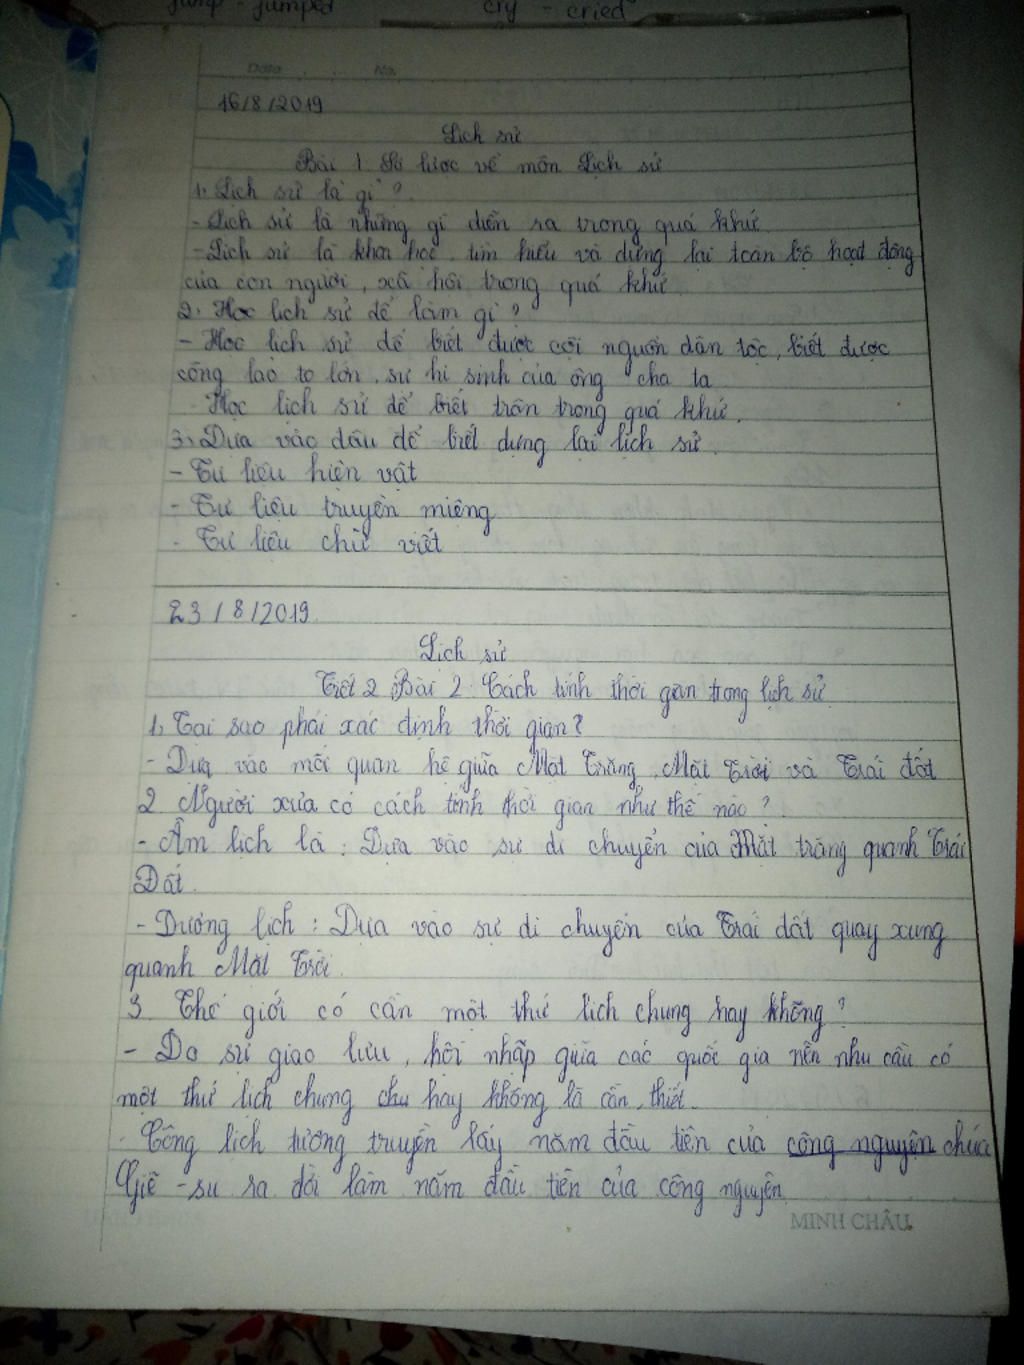 jump - jumped cry - cried
Date No.
16/8/2019
Lịch sử
Bài 1. Sơ lược về môn Lịch sử
1, Lịch sử là gì ?
- Lịch sử là những gì diễn ra trong quá khứ.
- Lịch sử là khoa học, tìm hiểu và dựng lại toàn bộ hoạt động
của con người, xã hội trong quá khứ.
2, Học lịch sử để làm gì ?
- Học lịch sử để biết được cội nguồn dân tộc, biết được
công lao to lớn, sự hi sinh của ông cha ta
- Học lịch sử để biết trân trọng quá khứ.
3, Dựa vào đâu để biết dựng lại lịch sử.
- Tư liệu hiện vật
- Tư liệu truyền miệng
- Tư liệu chữ viết
23/8/2019
Lịch sử
Tiết 2 Bài 2: Cách tính thời gian trong lịch sử
1, Tại sao phải xác định thời gian?
- Dựa vào mối quan hệ giữa Mặt Trăng, Mặt Trời và Trái đất
2 Người xưa có cách tính thời gian như thế nào ?
- Âm lịch là : Dựa vào sự di chuyển của Mặt trăng quanh Trái
Đất.
- Dương lịch : Dựa vào sự di chuyển của Trái đất quay xung
quanh Mặt Trời.
3. Thế giới có cần một thứ lịch chung hay không?
- Do sự giao lưu, hội nhập giữa các quốc gia nên nhu cầu có
một thứ lịch chung chu hay không là cần thiết.
- Công lịch tương truyền lấy năm đầu tiên của công nguyên chúa
Giê - su ra đời làm năm đầu tiên của công nguyên.
MINH CHÂU